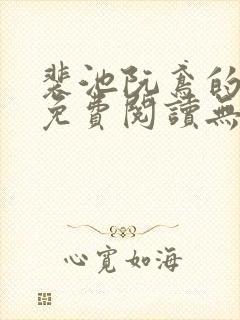 裴池阮鸢的
免費閱讀無
心寬如海